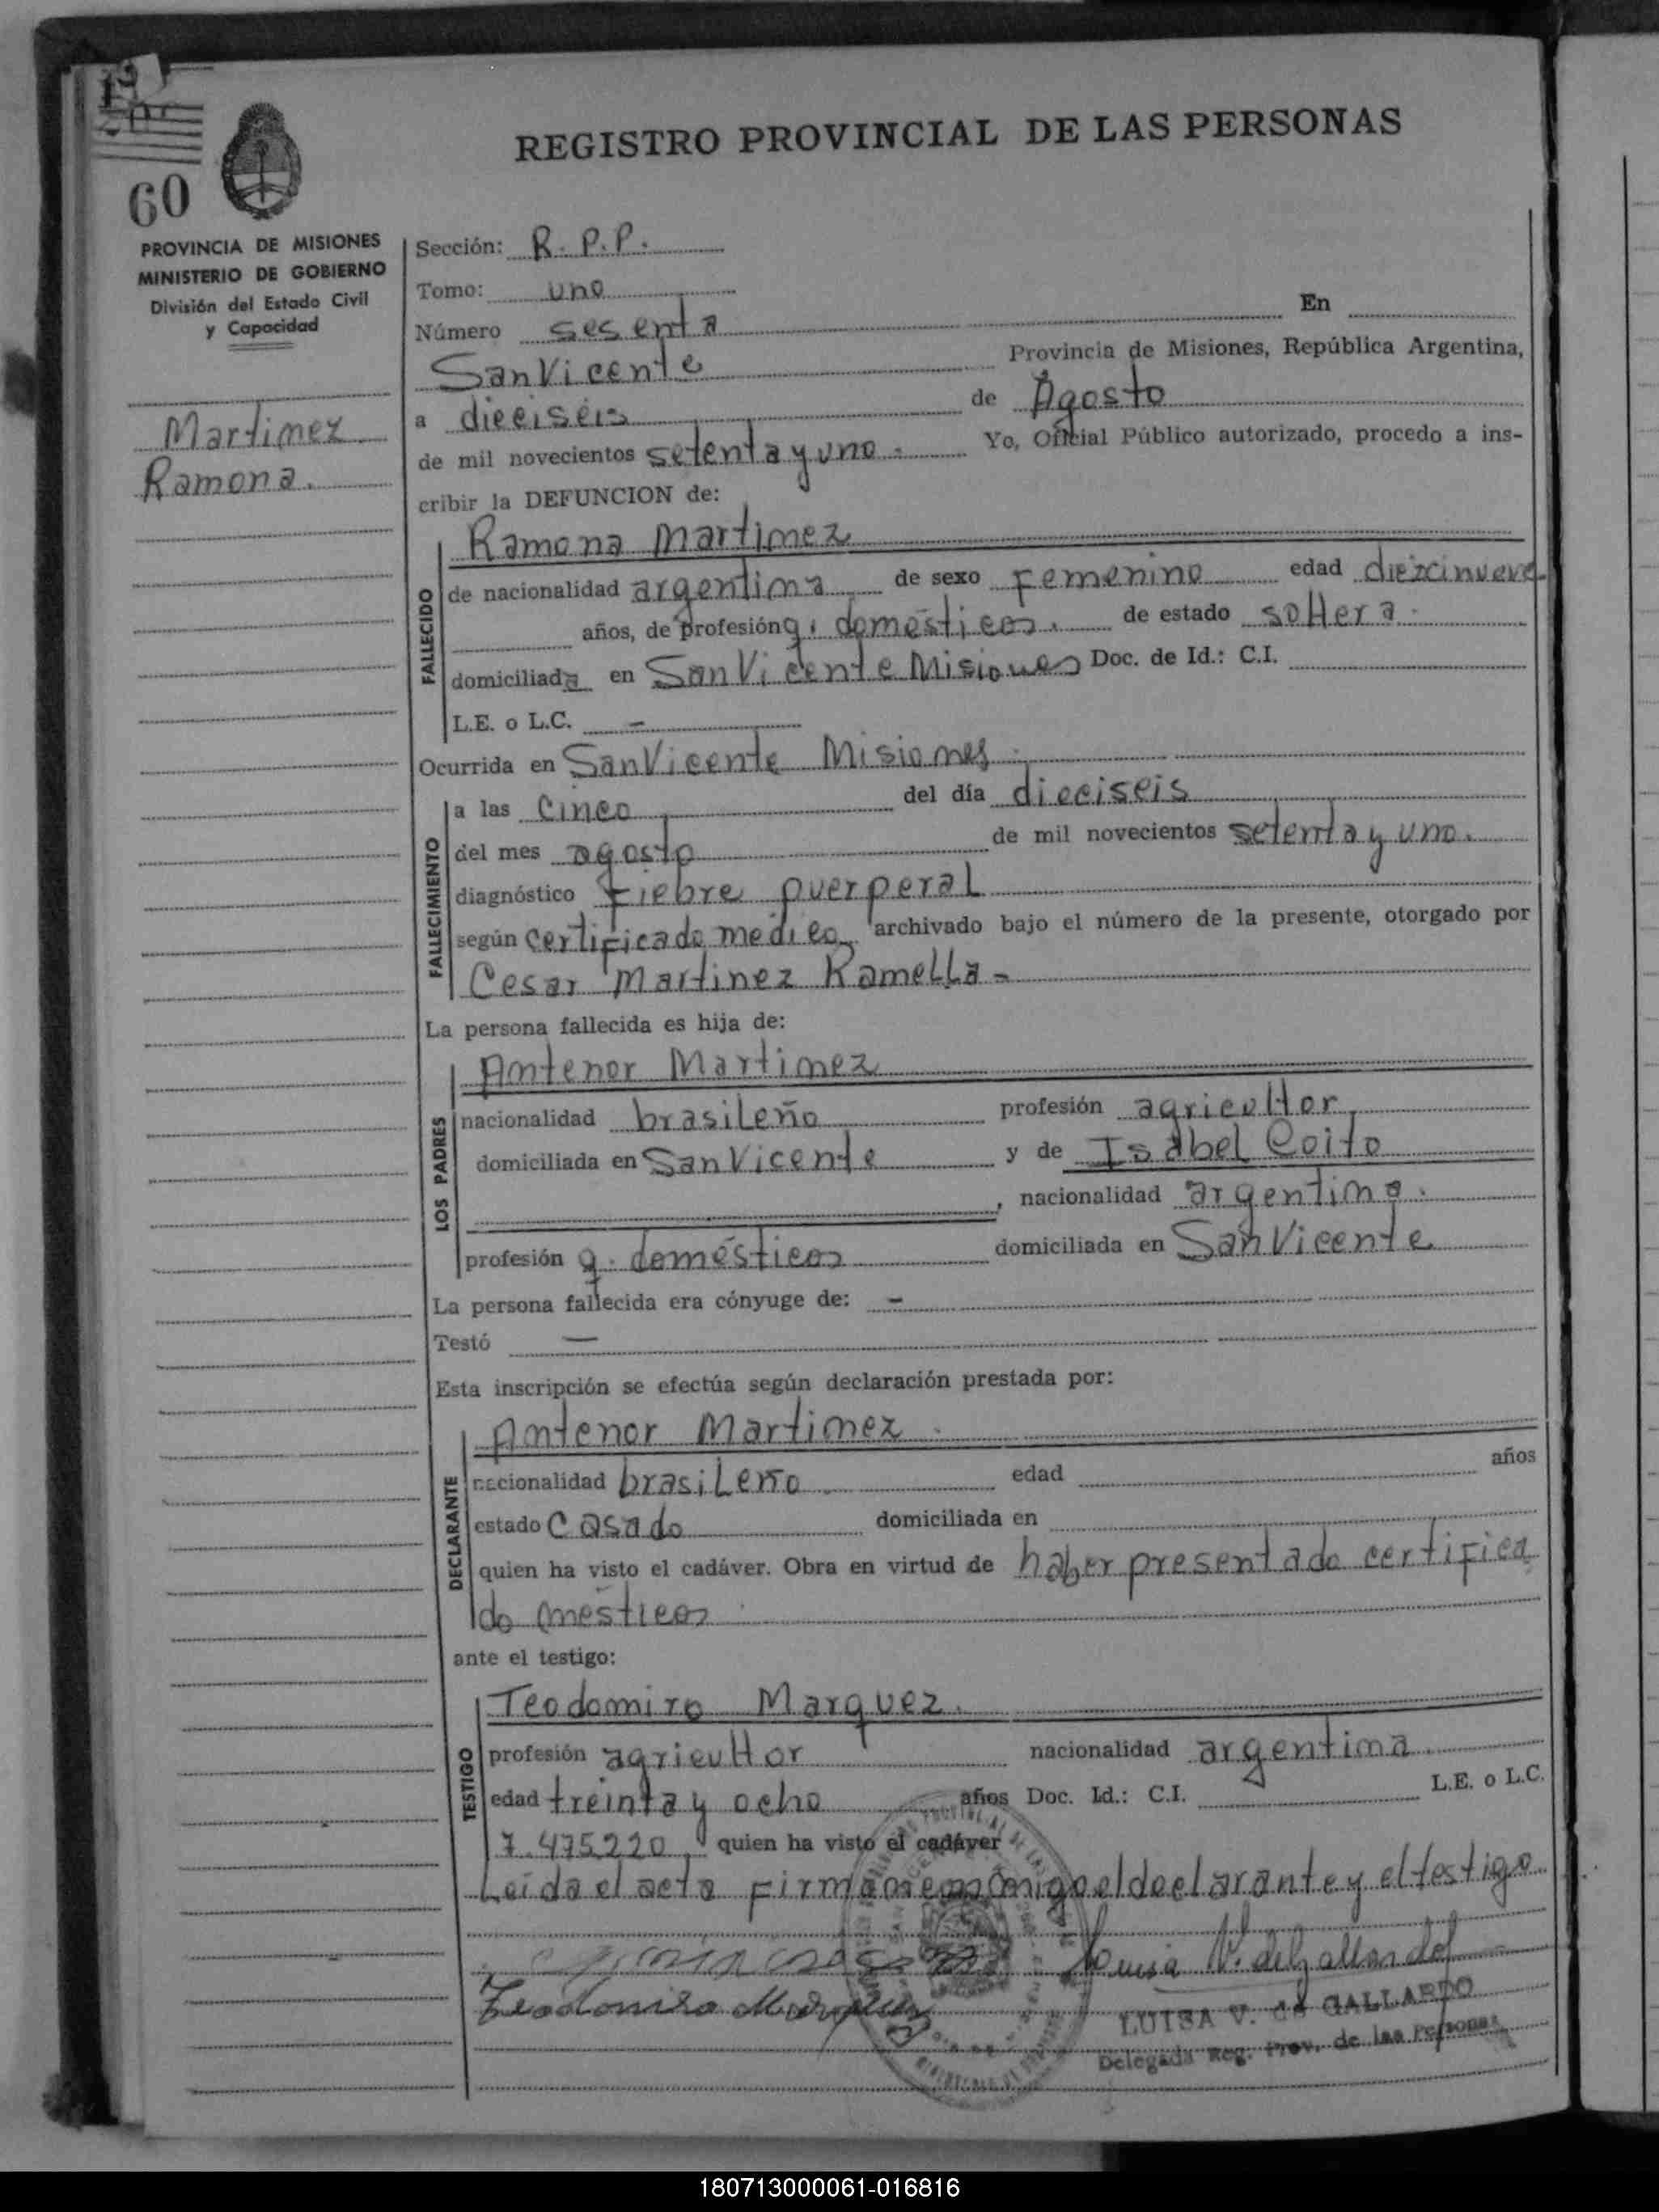 19
REGISTRO PROVINCIAL DE LAS PERSONAS
60
PROVINCIA DE MISIONES
MINISTERIO DE GOBIERNO
División del Estado Civil
y Capacidad
Martimez
Ramona.
Sección: R. P.P.
Tomo: uno
Número sesenta En
San Vicente Provincia de Misiones, República Argentina,
a dieciseis de Agosto
de mil novecientos setenta y uno - Yo, Oficial Público autorizado, procedo a ins-
cribir la DEFUNCION de:
FALLECIDO
Ramona Martimez
de nacionalidad argentima de sexo Femenino edad diezcinueve
años, de profesión q. domésticos. de estado soltera.
domiciliada en San Vicente Misiones Doc. de Id.: C.I.
L.E. o L.C. -
Ocurrida en San Vicente Misiomes
FALLECIMIENTO
a las cinco del día dieciseis
del mes agosto de mil novecientos setenta y uno.
diagnóstico Fiebre puerperal
según certificado medico archivado bajo el número de la presente, otorgado por
Cesar Martinez Ramella-
La persona fallecida es hija de:
LOS PADRES
Antenor Martimez
nacionalidad brasileño profesión agricultor
domiciliada en San Vicente y de Isabel Coito
, nacionalidad argentina.
profesión q. domésticos domiciliada en San Vicente
La persona fallecida era cónyuge de: -
Testó —
Esta inscripción se efectúa según declaración prestada por:
DECLARANTE
Antenor Martimez.
nacionalidad brasileño edad años
estado casado domiciliada en
quien ha visto el cadáver. Obra en virtud de haber presentado certifica
do mésticos
ante el testigo:
TESTIGO
Teodomiro Marquez.
profesión agricultor nacionalidad argentima.
edad treinta y ocho años Doc. Id.: C.I. L.E. o L.C.
7.475220 quien ha visto el cadáver
Leida el acta Firman conmigo el declarante y el testigo
Luisa V. de Gallardo
Teodomiro Marquez
LUISA V. de GALLARDO
Delegada Reg. Prov. de las Personas
180713000061-016816